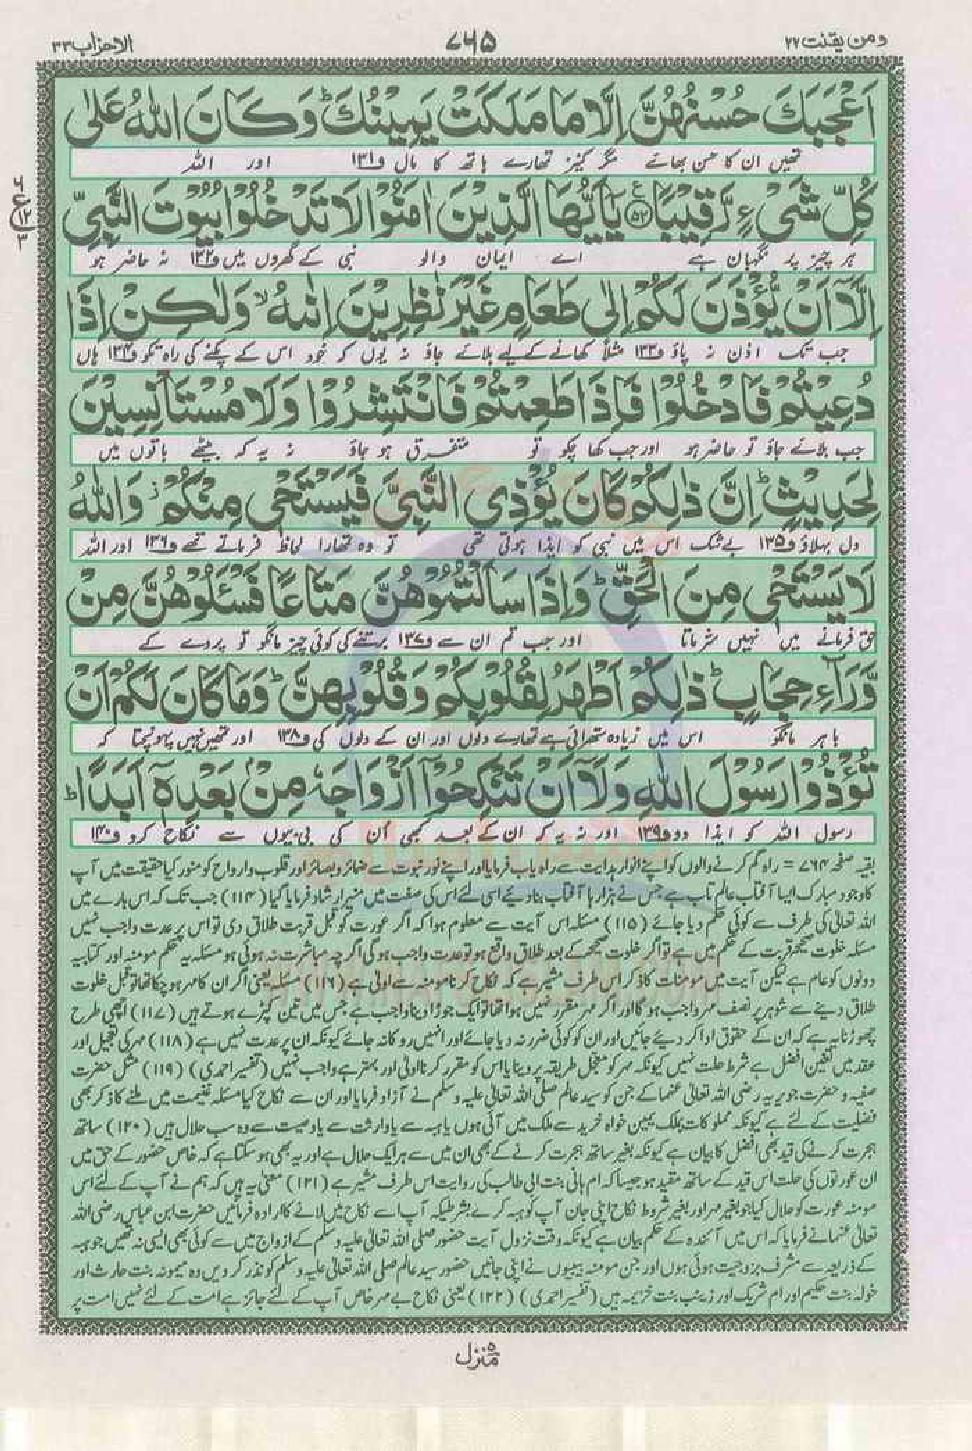 ومن یقنت ۲۲
۷۶۵
الاحزاب ۳۳
اَعْجَبَكَ حُسْنُهُنَّ اِلَّا مَا مَلَكَتْ يَمِيْنُكَ ؕ وَكَانَ اللّٰهُ عَلٰى
تمھیں ان کا حسن بھائے مگر کنیز تمھارے ہاتھ کا مال و۱۳۱ اور اللہ
كُلِّ شَیْءٍ رَّقِيْبًا ۵۲ يٰۤاَيُّهَا الَّذِيْنَ اٰمَنُوْا لَا تَدْخُلُوْا بُيُوْتَ النَّبِیِّ
ہر چیز پر نگہبان ہے اے ایمان والو نبی کے گھروں میں و۱۳۲ نہ حاضر ہو
اِلَّاۤ اَنْ يُّؤْذَنَ لَكُمْ اِلٰى طَعَامٍ غَيْرَ نٰظِرِيْنَ اِنٰىهُ ۙ وَلٰكِنْ اِذَا
جب تک اذن نہ پاؤ و۱۳۳ مثلاً کھانے کے لیے بلائے جاؤ نہ یوں کہ خود اس کے پکنے کی راہ تکو و۱۳۴ ہاں
دُعِيْتُمْ فَادْخُلُوْا فَاِذَا طَعِمْتُمْ فَانْتَشِرُوْا وَلَا مُسْتَاْنِسِيْنَ
جب بلائے جاؤ تو حاضر ہو اور جب کھا چکو تو متفرق ہو جاؤ نہ یہ کہ بیٹھے باتوں میں
لِحَدِيْثٍ ؕ اِنَّ ذٰلِكُمْ كَانَ يُؤْذِی النَّبِیَّ فَيَسْتَحْیٖ مِنْكُمْ ؗ وَاللّٰهُ
دل بہلاؤ و۱۳۵ بےشک اس میں نبی کو ایذا ہوتی تھی تو وہ تمھارا لحاظ فرماتے تھے و۱۳۶ اور اللہ
لَا يَسْتَحْیٖ مِنَ الْحَقِّ ؕ وَاِذَا سَاَلْتُمُوْهُنَّ مَتَاعًا فَسْـَٔلُوْهُنَّ مِنْ
حق فرمانے میں نہیں شرماتا اور جب تم ان سے و۱۳۷ برتنے کی کوئی چیز مانگو تو پردے کے
وَّرَآءِ حِجَابٍ ؕ ذٰلِكُمْ اَطْهَرُ لِقُلُوْبِكُمْ وَقُلُوْبِهِنَّ ؕ وَمَا كَانَ لَكُمْ اَنْ
باہر مانگو اس میں زیادہ ستھرائی ہے تمھارے دلوں اور ان کے دلوں کی و۱۳۸ اور تمھیں نہیں پہونچتا کہ
تُؤْذُوْا رَسُوْلَ اللّٰهِ وَلَاۤ اَنْ تَنْكِحُوْۤا اَزْوَاجَهٗ مِنْۢ بَعْدِهٖۤ اَبَدًا ؕ
رسول اللہ کو ایذا دو و۱۳۹ اور نہ یہ کہ ان کے بعد کبھی ان کی بی بیوں سے نکاح کرو و۱۴۰
بقیہ صفحہ ۷۶۴ = راہ گم کرنے والوں کو اپنے انوار ہدایت سے راہ یاب فرمایا اور اپنے نور نبوت سے ضمائر و بصائر اور قلوب و ارواح کو منور کیا حقیقت میں آپ
کا وجود مبارک ایسا آفتاب عالم تاب ہے جس نے ہزارہا آفتاب بنا دیے اسی لئے اس کی صفت میں منیر ارشاد فرمایا گیا (۱۱۴) جب تک کہ اس بارے میں
اللہ تعالٰی کی طرف سے کوئی حکم دیا جائے (۱۱۵) مسئلہ اس آیت سے معلوم ہوا کہ اگر عورت کو قبل قربت طلاق دی تو اس پر عدت واجب نہیں
مسئلہ خلوت صحیحہ قربت کے حکم میں ہے تو اگر خلوت صحیحہ کے بعد طلاق واقع ہو تو عدت واجب ہوگی اگرچہ مباشرت نہ ہوئی ہو مسئلہ یہ حکم مومنہ اور کتابیہ
دونوں کو عام ہے لیکن آیت میں مومنات کا ذکر اس طرف مشیر ہے کہ نکاح کرنا مومنہ سے اولٰی ہے (۱۱۶) مسئلہ یعنی اگر ان کا مہر ہو چکا تھا تو قبل خلوت
طلاق دینے سے شوہر پر نصف مہر واجب ہوگا اور اگر مہر مقرر نہیں ہوا تھا تو ایک جوڑا دینا واجب ہے جس میں تین کپڑے ہوتے ہیں (۱۱۷) اچھی طرح
چھوڑنا یہ ہے کہ ان کے حقوق ادا کر دیے جائیں اور ان کو کوئی ضرر نہ دیا جائے اور انھیں روکا نہ جائے کیونکہ ان پر عدت نہیں ہے (۱۱۸) مہر کی تعجیل اور
عقد میں تعین افضل ہے شرط حلت نہیں کیونکہ مہر کو معجل طریقہ پر دینا یا اس کو مقرر کرنا اولٰی اور بہتر ہے واجب نہیں (تفسیر احمدی) (۱۱۹) مثل حضرت
صفیہ و حضرت جویریہ رضی اللہ تعالٰی عنہما کے جن کو سید عالم صلی اللہ تعالٰی علیہ وسلم نے آزاد فرمایا اور ان سے نکاح کیا مسئلہ غنیمت میں ملنے کا ذکر بھی
فضیلت کے لئے ہے کیونکہ مملوکات بملک یمین خواہ خرید سے ملک میں آئی ہوں یا ہبہ سے یا وراثت سے یا وصیت سے وہ سب حلال ہیں (۱۲۰) ساتھ
ہجرت کرنے کی قید بھی افضل کا بیان ہے کیونکہ بغیر ساتھ ہجرت کرنے کے بھی ان میں سے ہر ایک حلال ہے اور یہ بھی ہو سکتا ہے کہ خاص حضور کے حق میں
ان عورتوں کی حلت اس قید کے ساتھ مقید ہو جیسا کہ ام ہانی بنت ابی طالب کی روایت اس طرف مشیر ہے (۱۲۱) معنی یہ ہیں کہ ہم نے آپ کے لئے اس
مومنہ عورت کو حلال کیا جو بغیر مہر اور بغیر شروط نکاح اپنی جان آپ کو ہبہ کرے بشرطیکہ آپ اسے نکاح میں لانے کا ارادہ فرمائیں حضرت ابن عباس رضی اللہ
تعالٰی عنہما نے فرمایا کہ اس میں آئندہ کے حکم بیان ہے کیونکہ وقت نزول آیت حضور صلی اللہ تعالٰی علیہ وسلم کے ازواج میں سے کوئی بھی ایسی نہ تھیں جو ہبہ
کے ذریعہ سے مشرف بزوجیت ہوئی ہوں اور جن مومنہ بیبیوں نے اپنی جانیں حضور سید عالم صلی اللہ تعالٰی علیہ وسلم کو نذر کر دیں وہ میمونہ بنت حارث اور
خولہ بنت حکیم اور ام شریک اور زینب بنت خزیمہ ہیں (تفسیر احمدی) (۱۲۲) یعنی نکاح بے مہر خاص آپ کے لئے جائز ہے امت کے لئے نہیں امت پر
منزل ۵